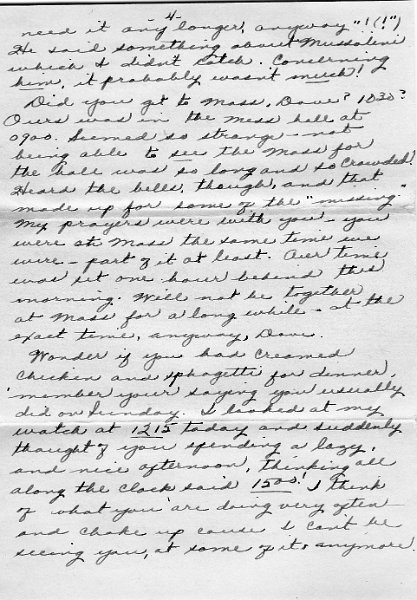 -4-
need it any longer, anyway"! (!")
He said something about Mussolini
which I didnt catch. Concerning
him, it probably wasnt much!
Did you get to Mass, Dave? 1030?
Ours was in the mess hall at
0900. Seemed so strange - not
being able to see the Mass for
the hall was so long and so crowded.
Heard the bells, though, and that
made up for some of the "missing."
My prayers were with you - you
were at Mass the same time we
were - part of it at least. Our time
was set one hour behind this
morning. We'll not be together
at Mass for a long while - at the
exact time, anyway, Dave.
Wonder if you had creamed
chicken and sphagetti for dinner,
'member your saying you usually
did on Sunday. I looked at my
watch at 1215 today and suddenly
thought of you spending a lazy,
and nice afternoon, thinking all
along the clock said 1500! I think
of what you are doing very often
and choke up cause I cant be
seeing you, at some of it, anymore.